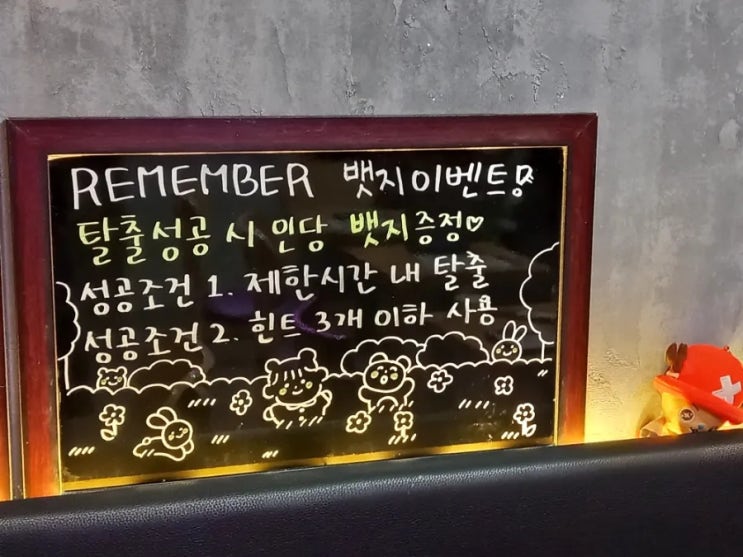 REMEMBER 뱃지이벤트!
탈출성공 시 인당 뱃지증정♡
성공조건 1. 제한시간 내 탈출
성공조건 2. 힌트 3개 이하 사용